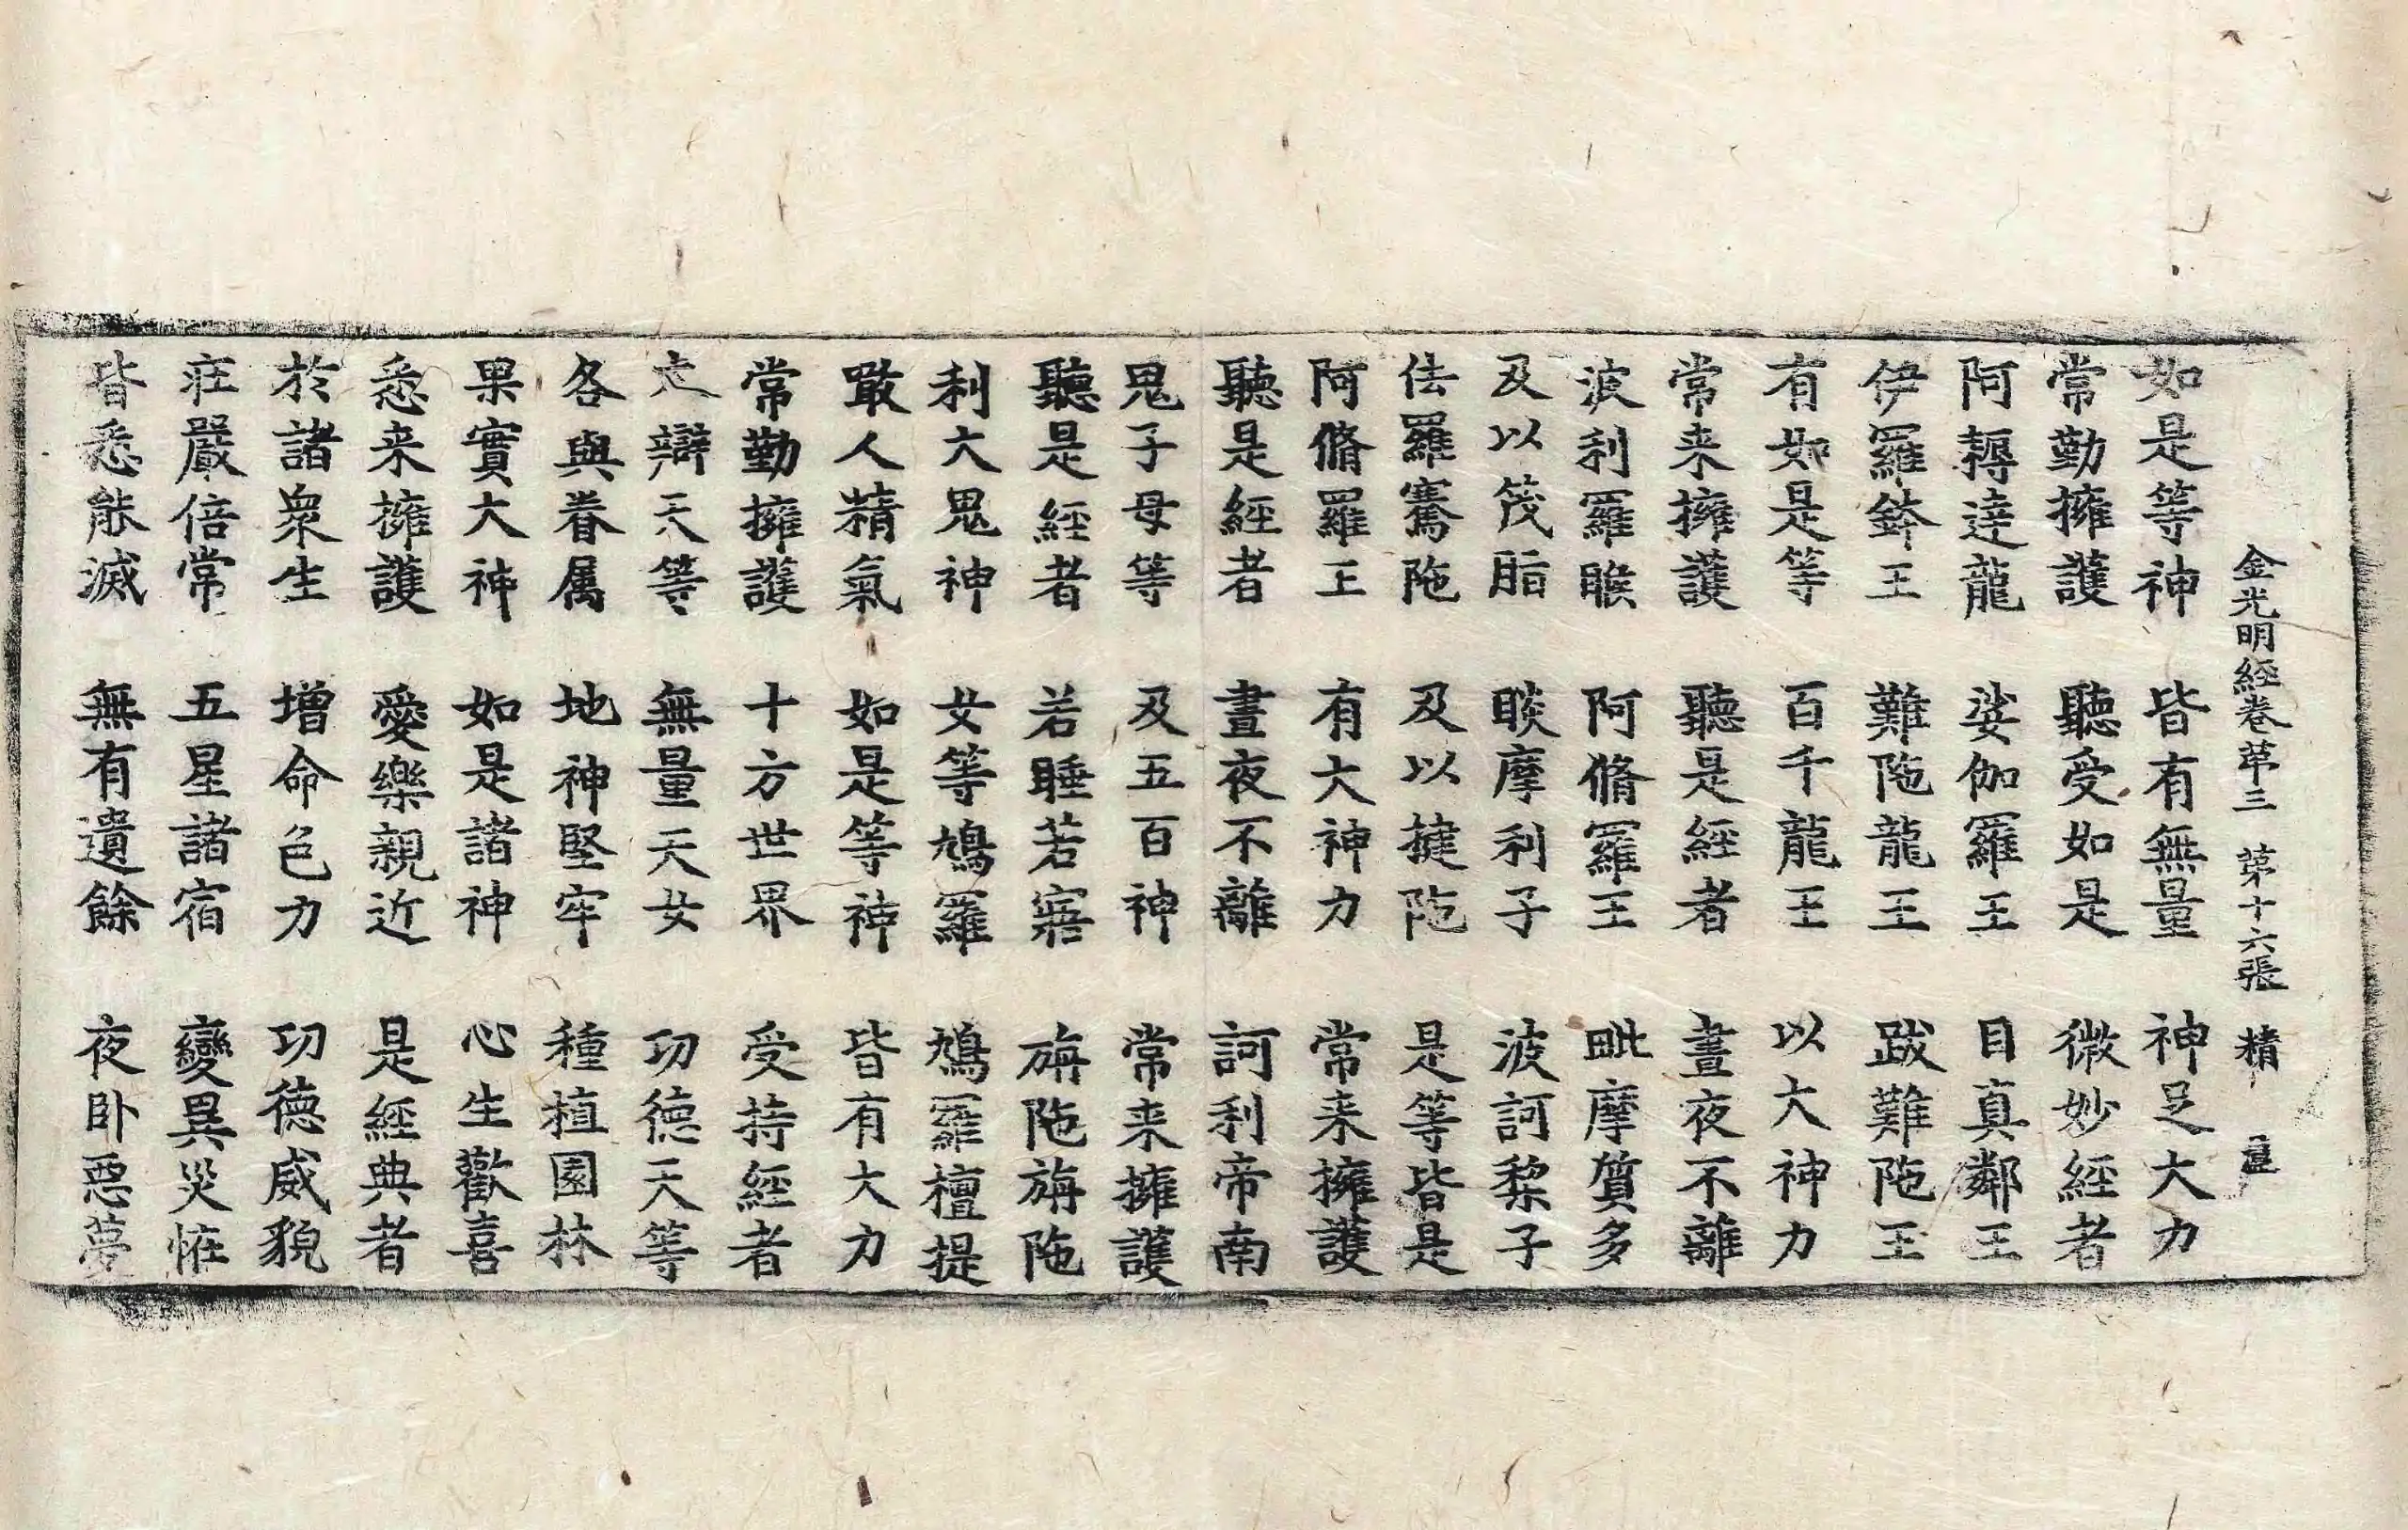 金光明經卷第三 第十六張 精
如是等神 皆有無量 神足大力
常勤擁護 聽受如是 微妙經者
阿耨達龍 娑伽羅王 目真鄰王
伊羅鉢王 難陁龍王 跋難陁王
有如是等 百千龍王 以大神力
常来擁護 聽是經者 晝夜不離
波利羅睺 阿脩羅王 毗摩質多
及以茂脂 睒摩利子 波訶梨子
佉羅騫陁 及以揵陁 是等皆是
阿脩羅王 有大神力 常来擁護
聽是經者 晝夜不離 訶利帝南
鬼子母等 及五百神 常来擁護
聽是經者 若睡若寤 旃陁旃陁
利大鬼神 女等鳩羅 鳩羅檀提
噉人精氣 如是等神 皆有大力
常勤擁護 十方世界 受持經者
大辯天等 無量天女 功德天等
各與眷属 地神堅牢 種植園林
果實大神 如是諸神 心生歡喜
悉来擁護 愛樂親近 是經典者
於諸衆生 增命色力 功德威貌
莊嚴倍常 五星諸宿 變異災恠
皆悉能滅 無有遺餘 夜卧惡夢